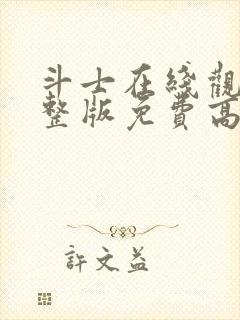 斗士在綫觀
整版免費高
許文益